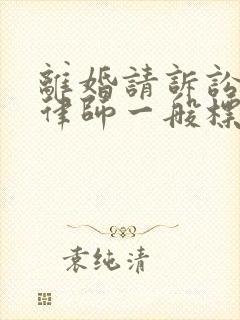 離婚請訴訟
律師一般標
袁纯清